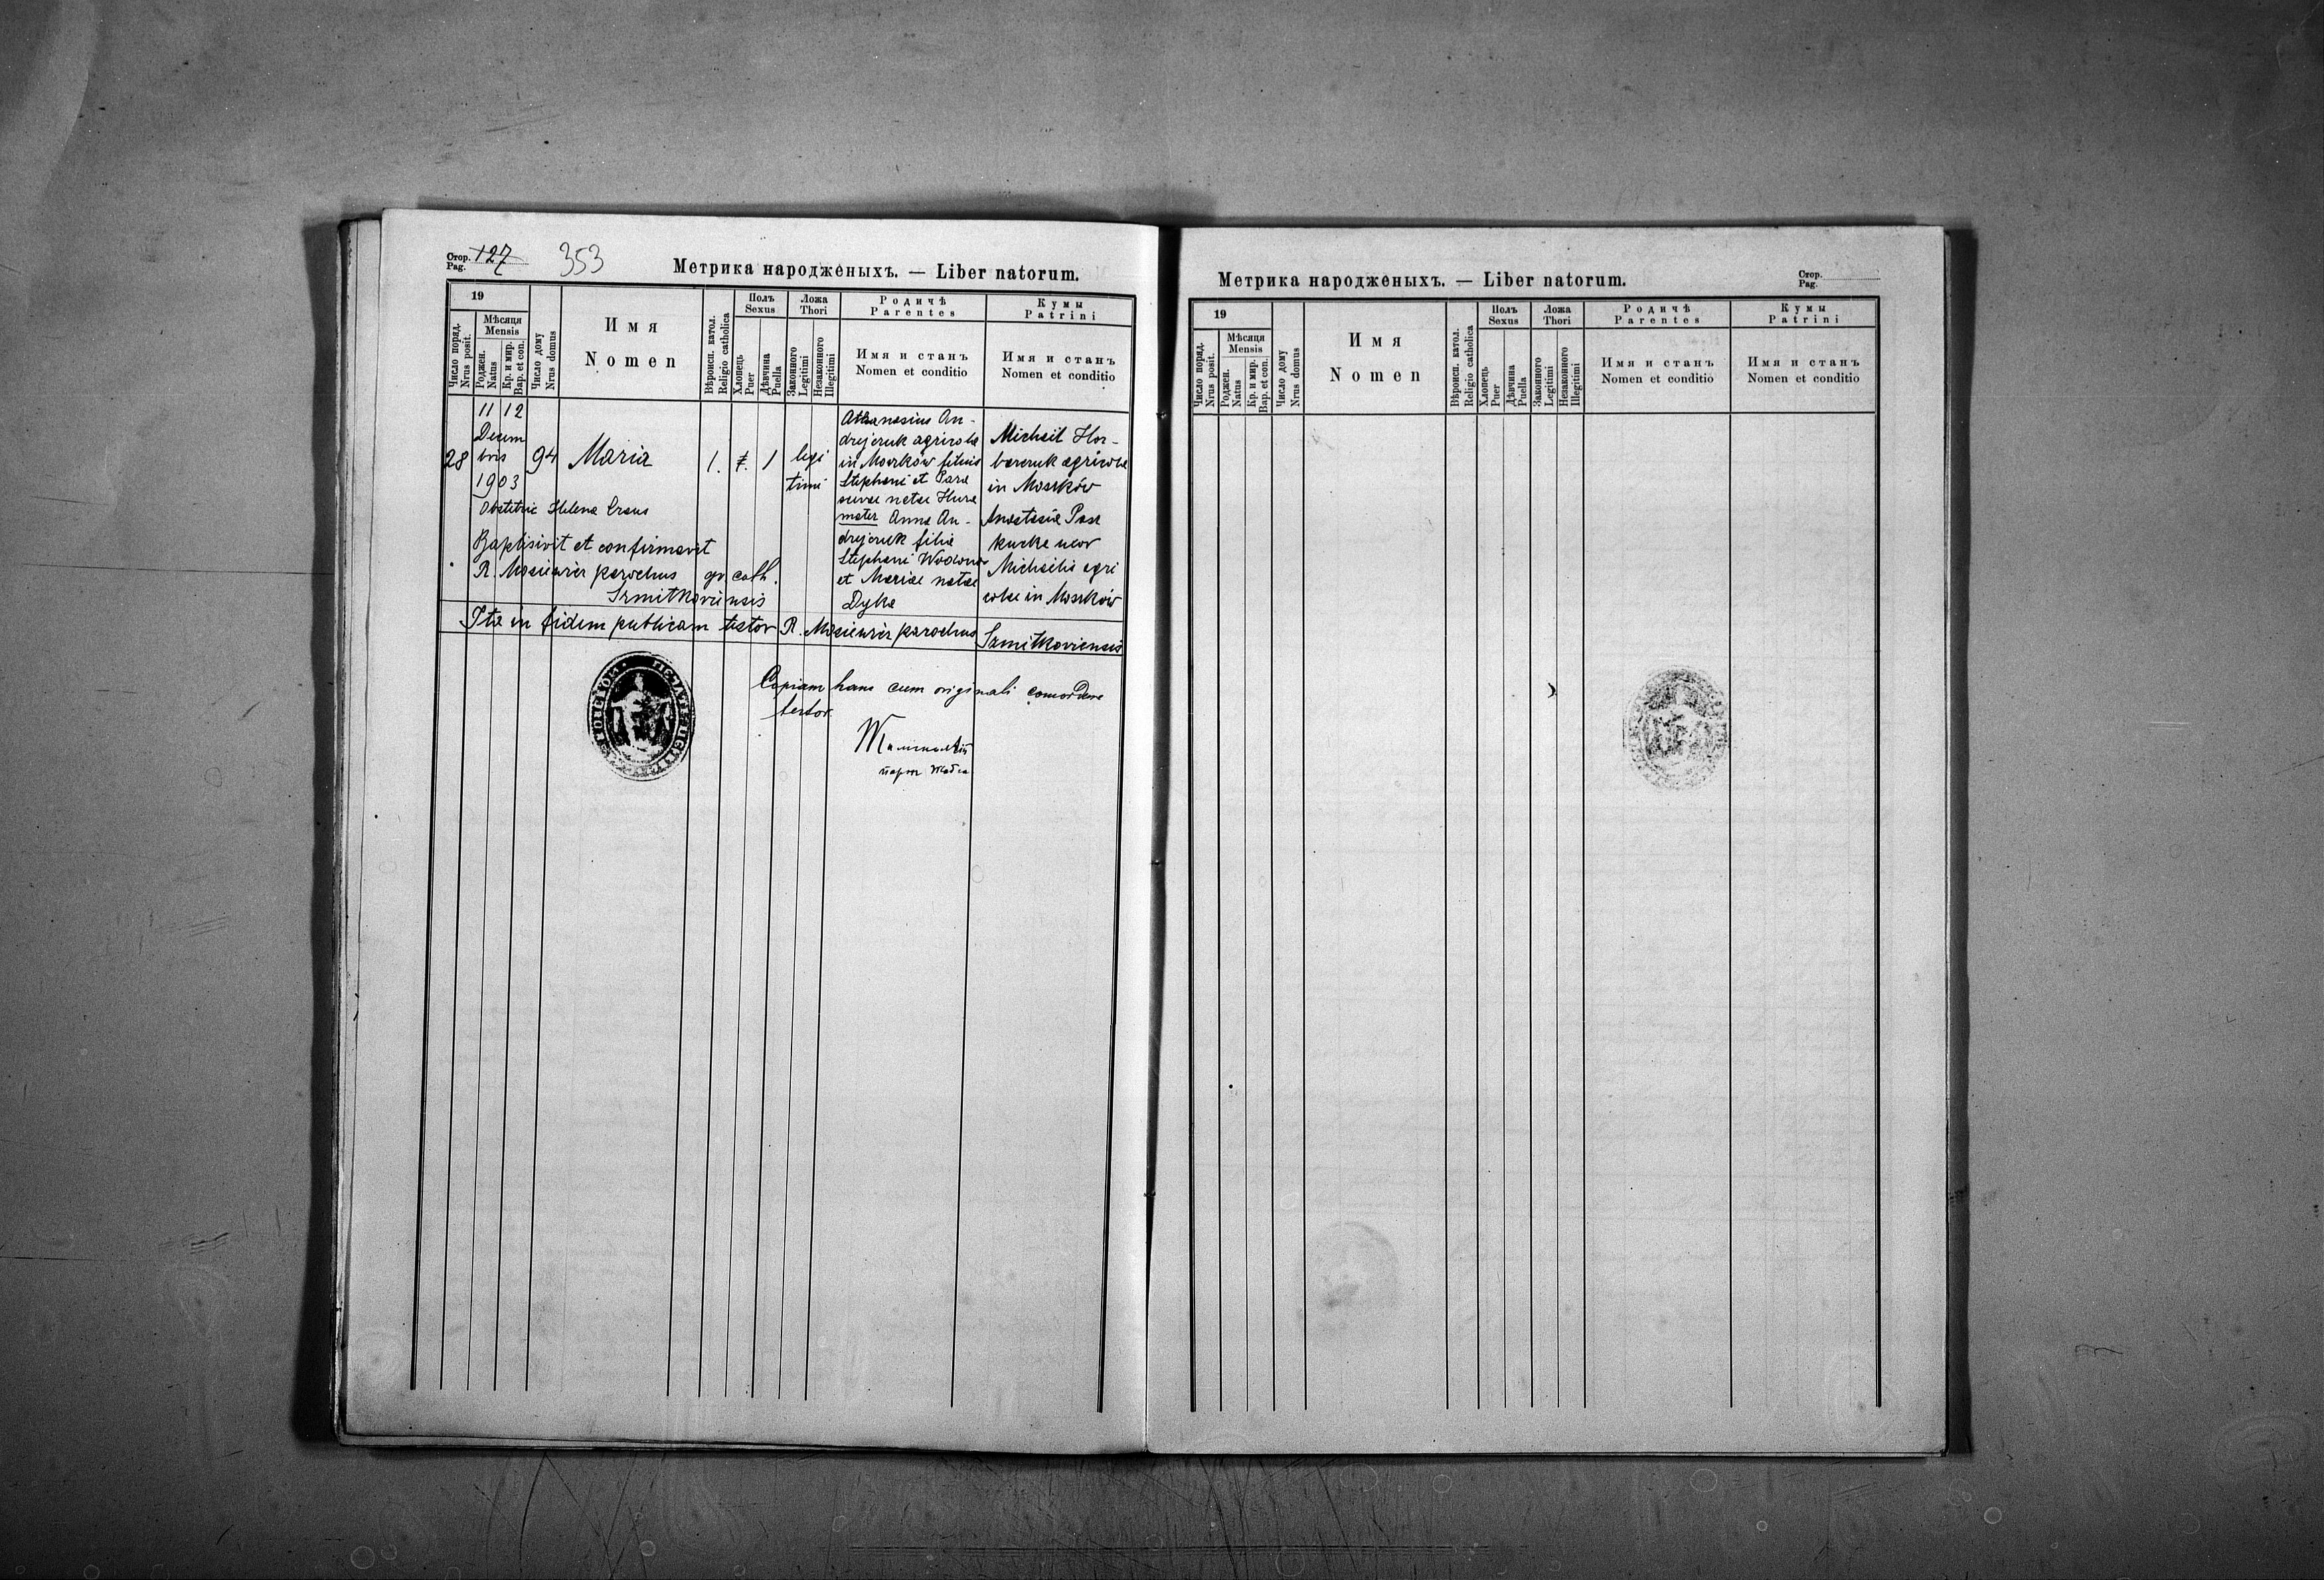 Стор. 127
Pag.
353
Метрика народженыхъ. — Liber natorum.
19
Число поряд.
Nrus posit.
Мѣсяця
Mensis
Роджен.
Natus
Кр. и мир.
Bap. et con.
Число дому
Nrus domus
Имя
Nomen
Вѣроисп. катол.
Religio catholica
Полъ
Sexus
Хлопець
Puer
Дѣвчина
Puella
Ложа
Thori
Законного
Legitimi
Незаконного
Illegitimi
Родичѣ
Parentes
Имя и станъ
Nomen et conditio
Кумы
Patrini
Имя и станъ
Nomen et conditio
28
11 12
Decem
bris
1903
94
Maria
1.
1
legi
timi
Athanasius An-
drejczuk agricola
in Moszków filius
Stephani et Para
scevae natae Hura
mater Anna An-
drejczuk filia
Stephani
et Mariae natae
Dyka
Michail Hor-
baczuk agricola
in Moszków
Anastasia
uxor
Michaelis agri
colae in Moszków
Obstetric Helena
Baptisivit et confirmavit
R. parochus gr. cath.
Szmitkoviensis
Ita in fidem publicam testor R. parochus Szmitkoviensis
Copiam hanc cum originali concordare
testor
Метрика народженыхъ. — Liber natorum.
Стор.
Pag.
19
Число поряд.
Nrus posit.
Мѣсяця
Mensis
Роджен.
Natus
Кр. и мир.
Bap. et con.
Число дому
Nrus domus
Имя
Nomen
Вѣроисп. катол.
Religio catholica
Полъ
Sexus
Хлопець
Puer
Дѣвчина
Puella
Ложа
Thori
Законного
Legitimi
Незаконного
Illegitimi
Родичѣ
Parentes
Имя и станъ
Nomen et conditio
Кумы
Patrini
Имя и станъ
Nomen et conditio